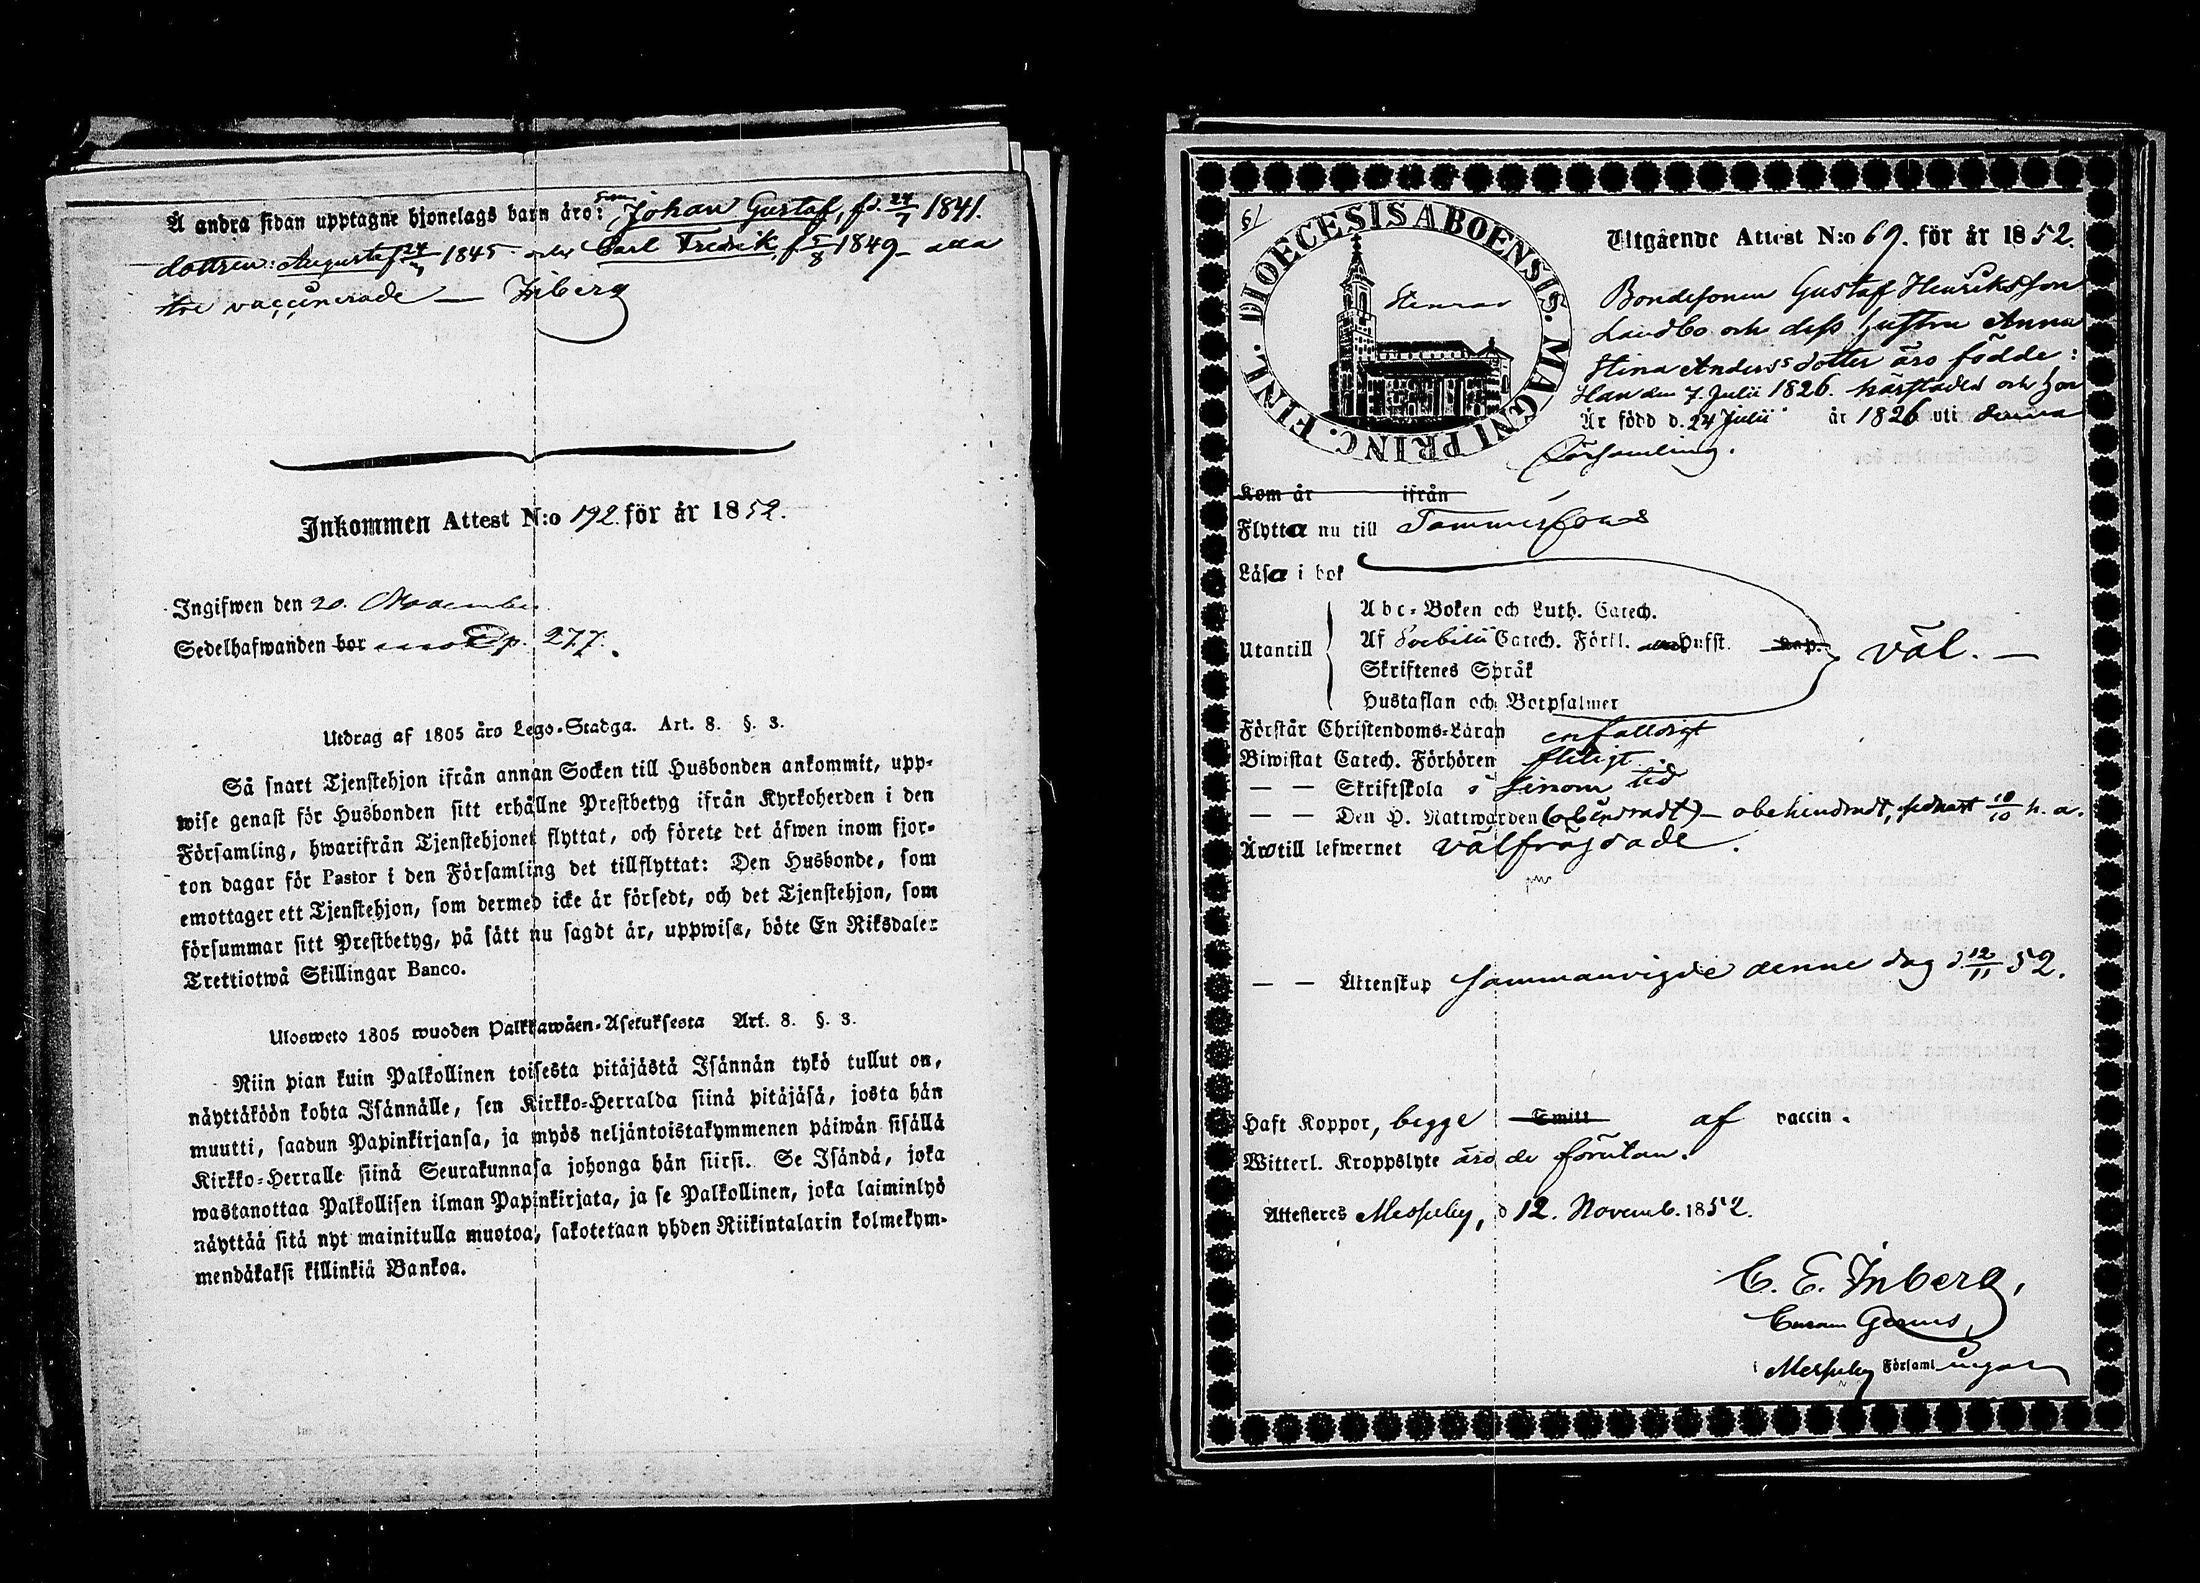 Å andra sidan upptagne hjonelags barn äro: Sonen Johan Gustaf, fd. 24/7 1841.
dottren: Augusta f. 24/3 1845 och Carl Fredrik, f. 5/8 1849 – alla
tre vaccinerade — Inberg
Inkommen Attest N:o 192. för år 1852.
Ingifwen den 20. November
Sedelhafwanden bor p. 277.
Utdrag af 1805 års Lego-Stadga. Art. 8. §. 3.
Så snart Tjenstehjon ifrån annan Socken till Husbonden ankommit, upp-
wise genast för Husbonden sitt erhållne Prestbetyg ifrån Kyrkoherden i den
Församling, hwarifrån Tjenstehjonet flyttat, och förete det äfwen inom fjor-
ton dagar för Pastor i den Församling det tillflyttat: Den Husbonde, som
emottager ett Tjenstehjon, som dermed icke är försedt, och det Tjenstehjon, som
försummar sitt Prestbetyg, på sätt nu sagdt är, uppwisa, böte En Riksdaler
Trettiotwå Skillingar Banco.
Ulosweto 1805 wuoden Palkkawäen-Asetuksesta Art. 8. §. 3.
Niin pian kuin Palkollinen toisesta pitäjästä Isännän tykö tullut on,
näyttäköön kohta Isännälle, sen Kirkko-Herralda siinä pitäjäsä, josta hän
muutti, saadun Papinkirjansa, ja myös neljäntoistakymmenen päiwän sisällä
Kirkko-Herralle siinä Seurakunnasa johonga hän siirsi. Se Isändä, joka
wastanottaa Palkollisen ilman Papinkirjata, ja se Palkollinen, joka laiminlyö
näyttää sitä nyt mainitulla muotoa, sakotetaan yhden Riikintalarin kolmekym-
mendäkaksi killinkiä Bankoa.
61
DIOECESIS ABOENSIS. MAGNI PRINC. FINL.
Utgående Attest N:o 69. för år 1852.
Bondesonen Gustaf Henriksson
Landbo och dess hustru Anna
Stina Andersdotter äro födde:
Han den 7. Julii 1826. härstädes och hon
Är född d. 24 Julii år 1826 uti denna
Församling.
Kom år ifrån
Flytta nu till Tammerfors
Läsa i bok
Utantill
Abc-Boken och Luth. Catech.
Af Svebilii Catech. Förkl. Hufst. Kap.
Skriftenes Språk
Hustaflan och Botpsalmer
väl. —
Förstår Christendoms-Läran enfalldigt
Biwistat Catech. Förhören flitigt
— — Skriftskola i sinom tid
— — Den H. Nattwarden (obehindradt) – obehindradt, sednast 10/10 h. a.
Äro till lefwernet välfrägdade.
— — Äktenskap sammanvigde denne dag d. 12/11 52.
Haft Koppor, begge Smitt af vaccin.
Witterl. Kroppslyte äro de förutan.
Attesteres Messuby, d 12. Novemb. 1852.
C. E. Inberg,
Curam Gerens,
i Messuby Församlingar